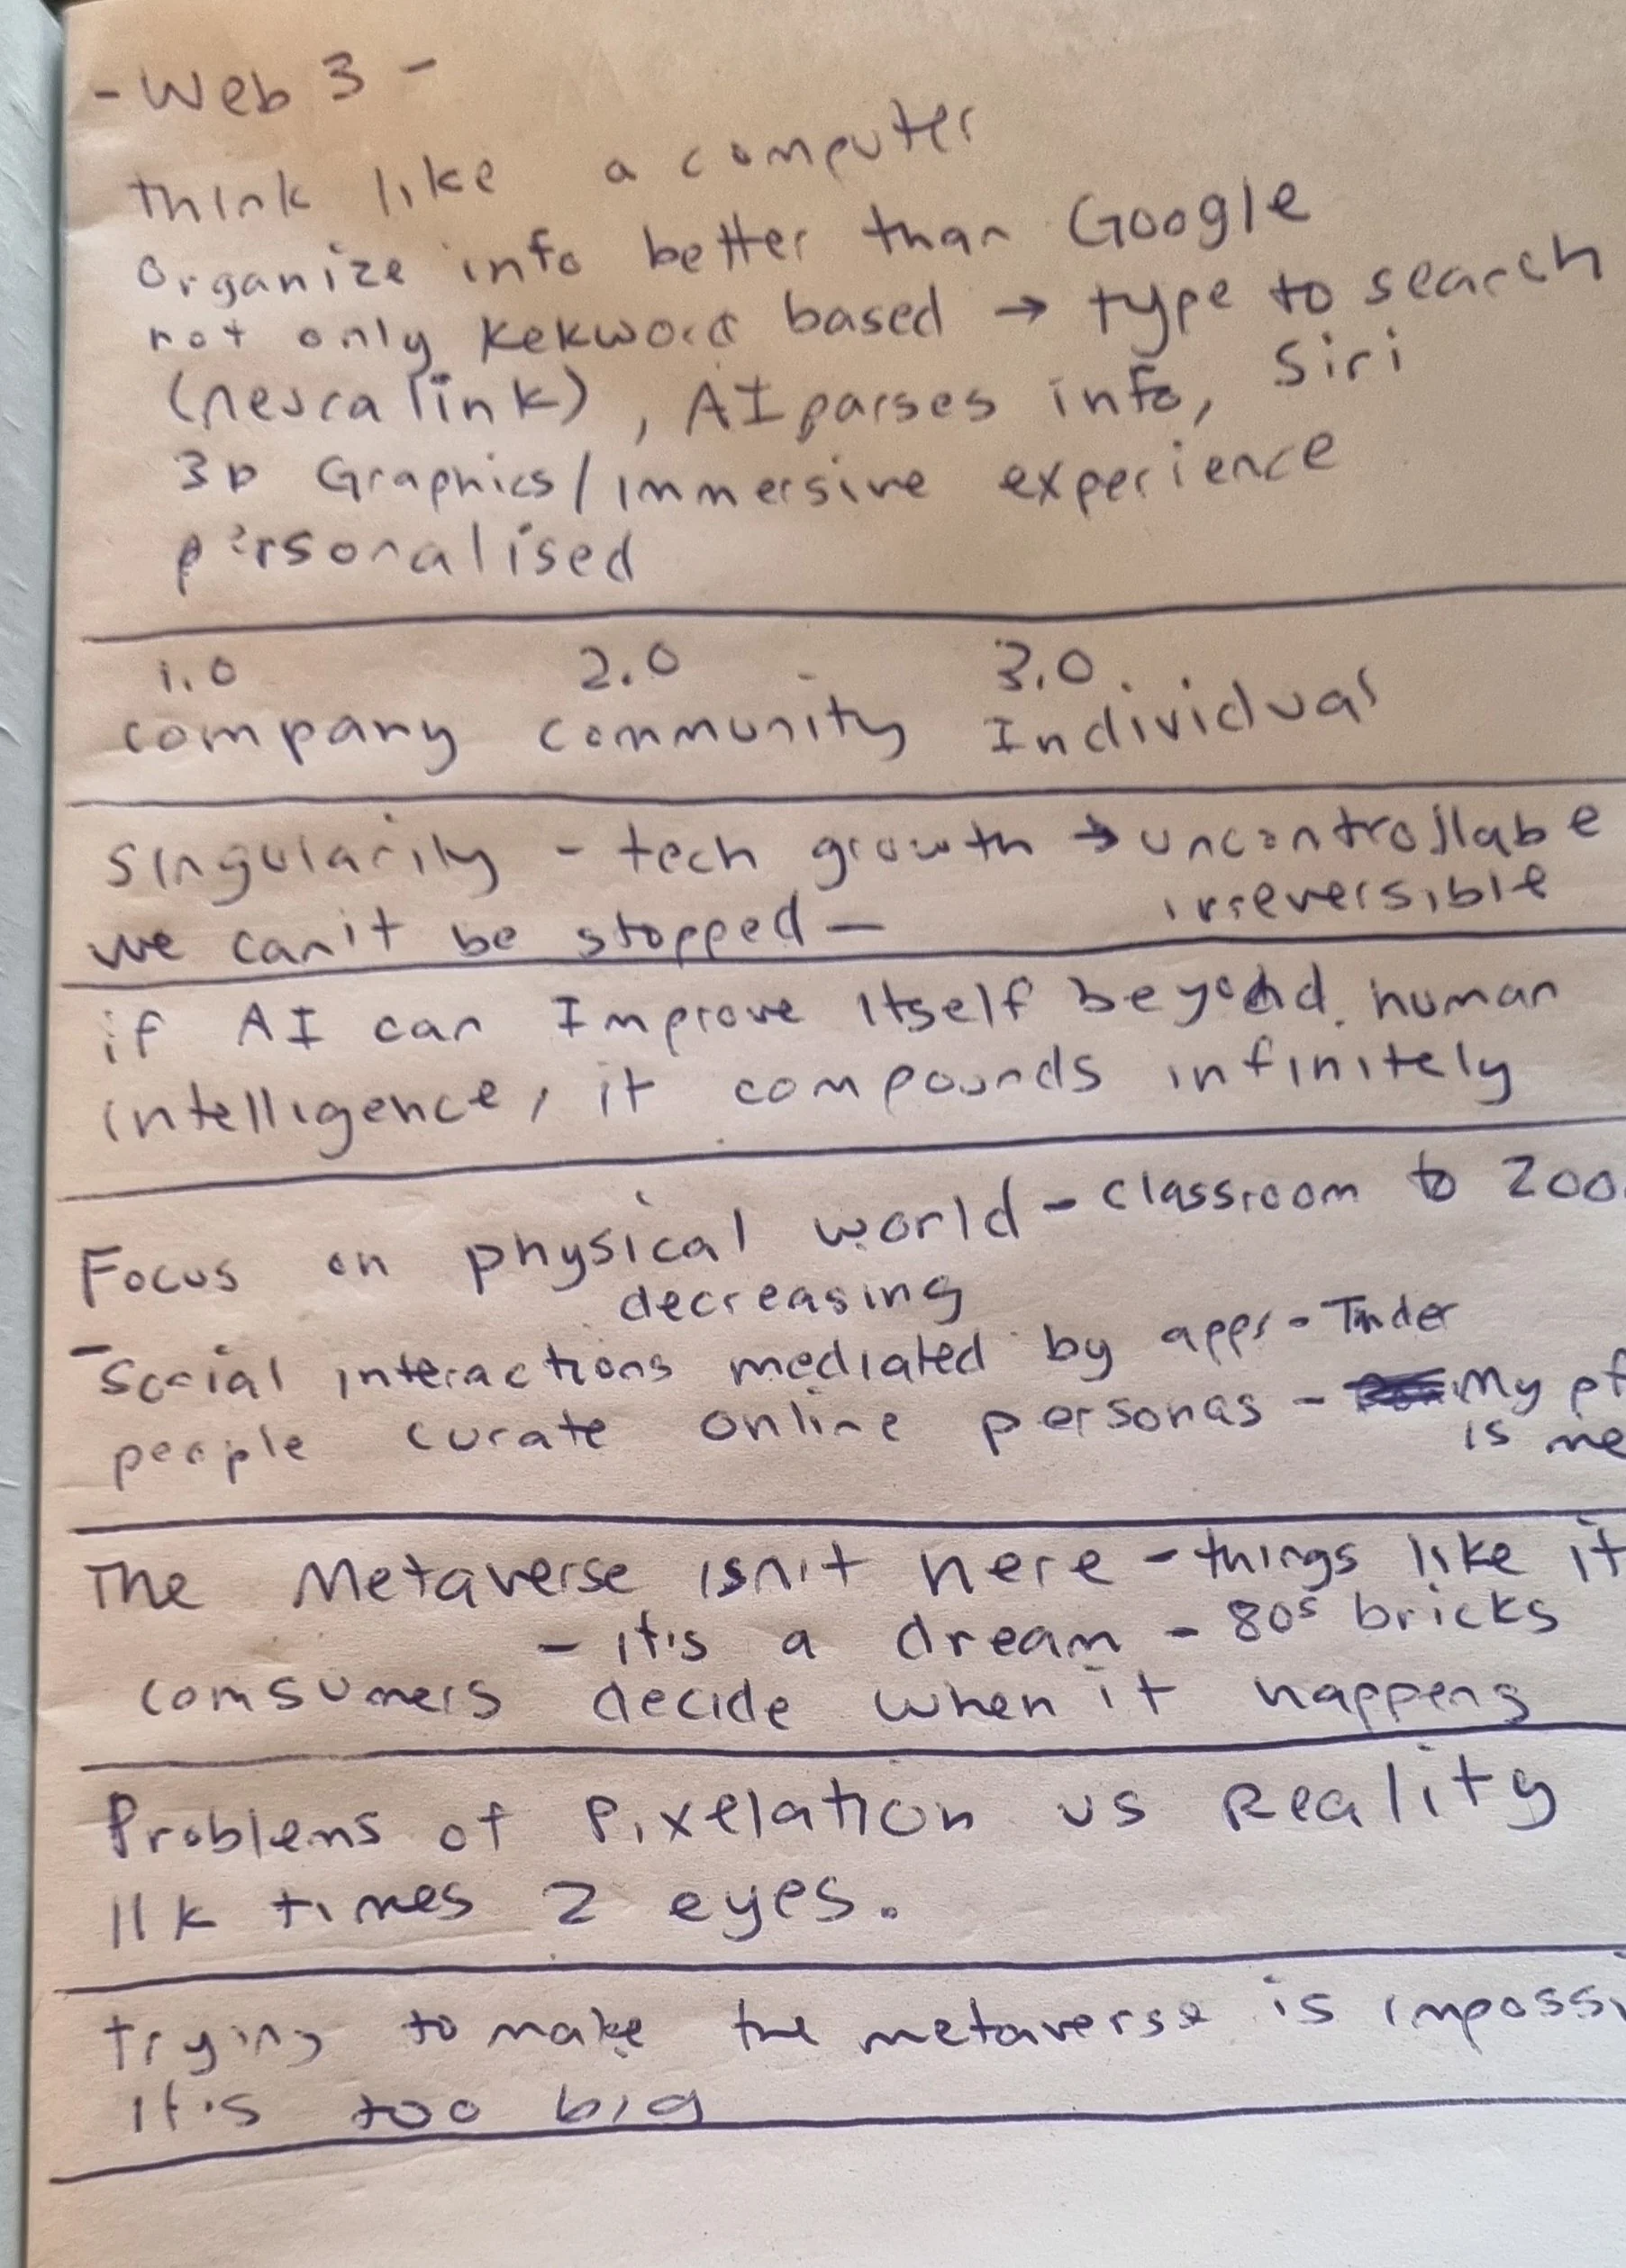 - Web 3 -
think like a computer
Organize info better than Google
not only kekword based → type to search
(neuralink), AI parses info, Siri
3D Graphics/immersive experience
personalised
1.0 2.0 3.0
company community Individual
Singularity - tech growth → uncontrollabe
irreversible
we can't be stopped —
if AI can Improve itself beyond human
intelligence, it compounds infinitely
Focus on physical world - classroom to zoo
decreasing
- Social interactions mediated by apps - Tinder
people curate online personas - My pf
is me
The Metaverse isn't here - things like it
- it's a dream - 80s bricks
comsumers decide when it happens
Problems of Pixelation vs Reality
11k times 2 eyes.
trying to make the metaverse is impossi
it's too big